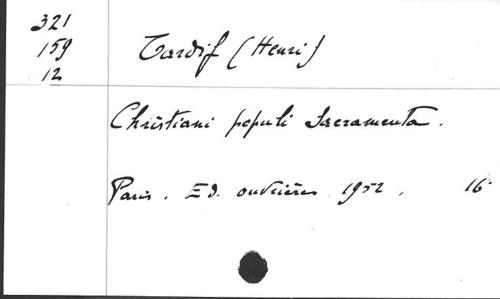 321
159
12
Tardif (Henri)
Christiani populi Sacramenta.
Paris. Ed. ouvrières 1952. 16°